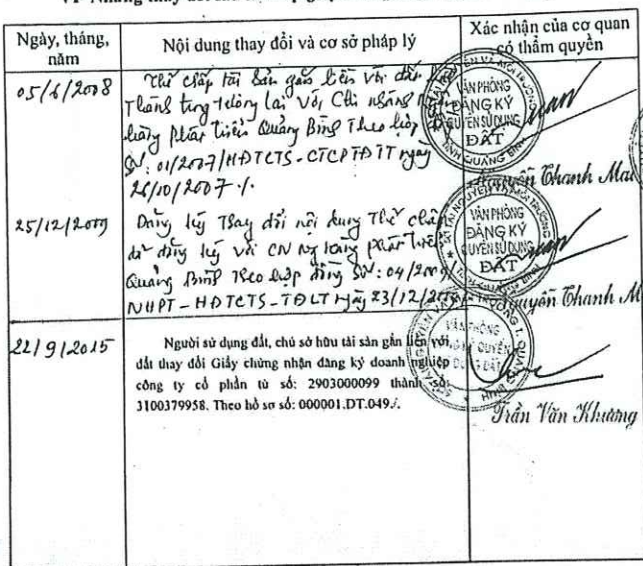 VI- Những thay đổi sau khi
Ngày, tháng, năm
Nội dung thay đổi và cơ sở pháp lý
Xác nhận của cơ quan có thẩm quyền
05/6/2008
Thế chấp tài sản gắn liền với đất
Thành trong tương lai với Chi nhánh
hàng phát triển Quảng Bình Theo hợp
Số: 01/2007/HĐTCTS-CTCPTĐTT ngày
26/10/2007 ./.
VĂN PHÒNG
ĐĂNG KÝ
QUYỀN SỬ DỤNG
ĐẤT
TỈNH QUẢNG BÌNH
Nguyễn Thanh Mai
25/12/2009
Đăng ký Thay đổi nội dung Thế chấp
đã đăng ký với CN Ng hàng phát triển
Quảng Bình Theo hợp đồng Số: 04/2009
NHPT-HĐTCTS-TĐLT ngày 23/12/
VĂN PHÒNG
ĐĂNG KÝ
QUYỀN SỬ DỤNG
ĐẤT
Nguyễn Thanh M
22/9/2015
Người sử dụng đất, chủ sở hữu tài sản gắn liền với
đất thay đổi Giấy chứng nhận đăng ký doanh nghiệp
công ty cổ phần từ số: 2903000099 thành số:
3100379958. Theo hồ sơ số: 000001.DT.049./.
VĂN PHÒNG
Trần Văn Khương